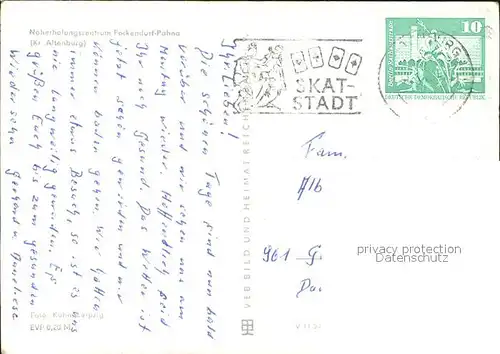 Naherholungszentrum Pockendorf-Pahna
(Kr. Altenburg)
Ihr Lieben!
Die schönen Tage sind nun bald
vorüber und wir sehen uns am
Montag wieder. Hoffentlich seid
Ihr noch Gesund. Das Wetter ist
jetzt schön geworden und wir
können baden gehen. Wir hatten
immer etwas Besuch, so ist es uns
nie langweilig geworden. Es
grüßen Euch bis zum gesunden
Wiedersehn Gerhard u. Anneliese
Foto: Kühn, Leipzig
EVP 0,20 M
VEB BILD UND HEIMAT REICHENBACH
V 11 50
SKAT-
STADT
10
DEUTSCHE DEMOKRATISCHE REPUBLIK
Fam.
Alb
961 G.
privacy protection
Datenschutz